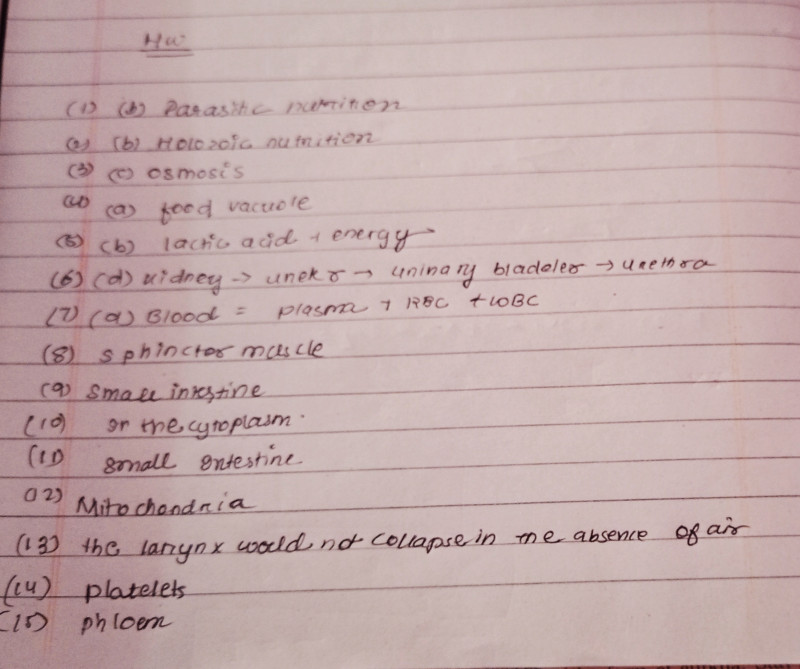 HW
(1) (d) Parasitic nutrition
(2) (b) Holozoic nutrition
(3) (c) osmosis
(4) (a) food vacuole
(5) (b) lactic acid + energy
(6) (d) kidney → → urinary bladder → urethra
(7) (a) Blood = plasma + RBC + WBC
(8) sphincter muscle
(9) Small intestine
(10) In the cytoplasm.
(11) Small Intestine
(12) Mitochondria
(13) the larynx would not collapse in the absence of air
(14) platelets
(15) phloem